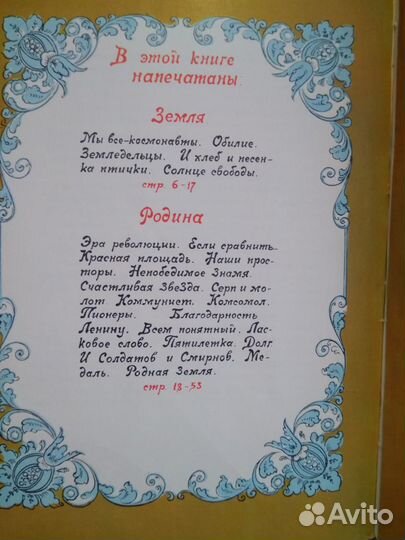 В этой книге
напечатаны:
Земля
Мы все-космонавты. Обилие.
Земледельцы. И хлеб и песен-
ка птички. Солнце свободы.
стр. 6-17
Родина
Эра революции. Если сравнить.
Красная площадь. Наши прос-
торы. Непобедимое Знамя.
Счастливая Звезда. Серп и мо-
лот. Коммунист. Комсомол.
Пионеры. Благодарность
Ленину. Всем понятный. Лас-
ковое слово. Пятилетка. Долг
И Солдатов и Смирнов. Ме-
даль. Родная Земля.
стр. 18-53
Avito